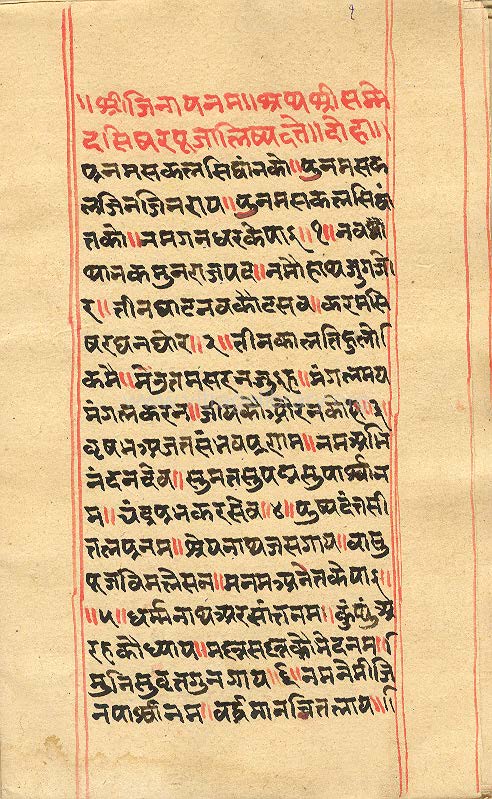 १
॥श्रीजिनायनमः॥अथश्रीसम्मे
दसिषरपूजालिष्यते॥दोहा॥
प्रनमसकलसिद्धांनको॥पुनमसक
लजिनजिनराय॥पुनमसकलसिद्धां
तको॥नमगनधरकेपाइ॥१॥नवऔ
मुनराजपद॥
र॥तीनघाटनवकोटसव॥करमसि
षरघनघोर॥२॥तीनकालतिहुलो
कमै॥सरनजुइह॥मंगलमय
मंगलकरन॥जीयकोऔरनकोइ॥३॥
वृषभअजितसंभवप्रनाम॥नमअभि
नंदनदेव॥सुमतसुपद्मसुपार्श्वन
म॥चंद्रप्रभकरसेव॥४॥पुष्पदंतसी
तलप्रनम॥श्रेयनाथजसगाय॥वासु
पूजविमलेसन॥मनमअनंतकेपाइ
॥५॥धर्मनाथअरसांतनम॥कुंथुंअ
रहकौध्याय॥मेदनम॥
मुनिसुव्रतगुनगाय॥६॥नमनेमीजि
नपार्श्वनम॥वर्द्धमानचितलाय॥